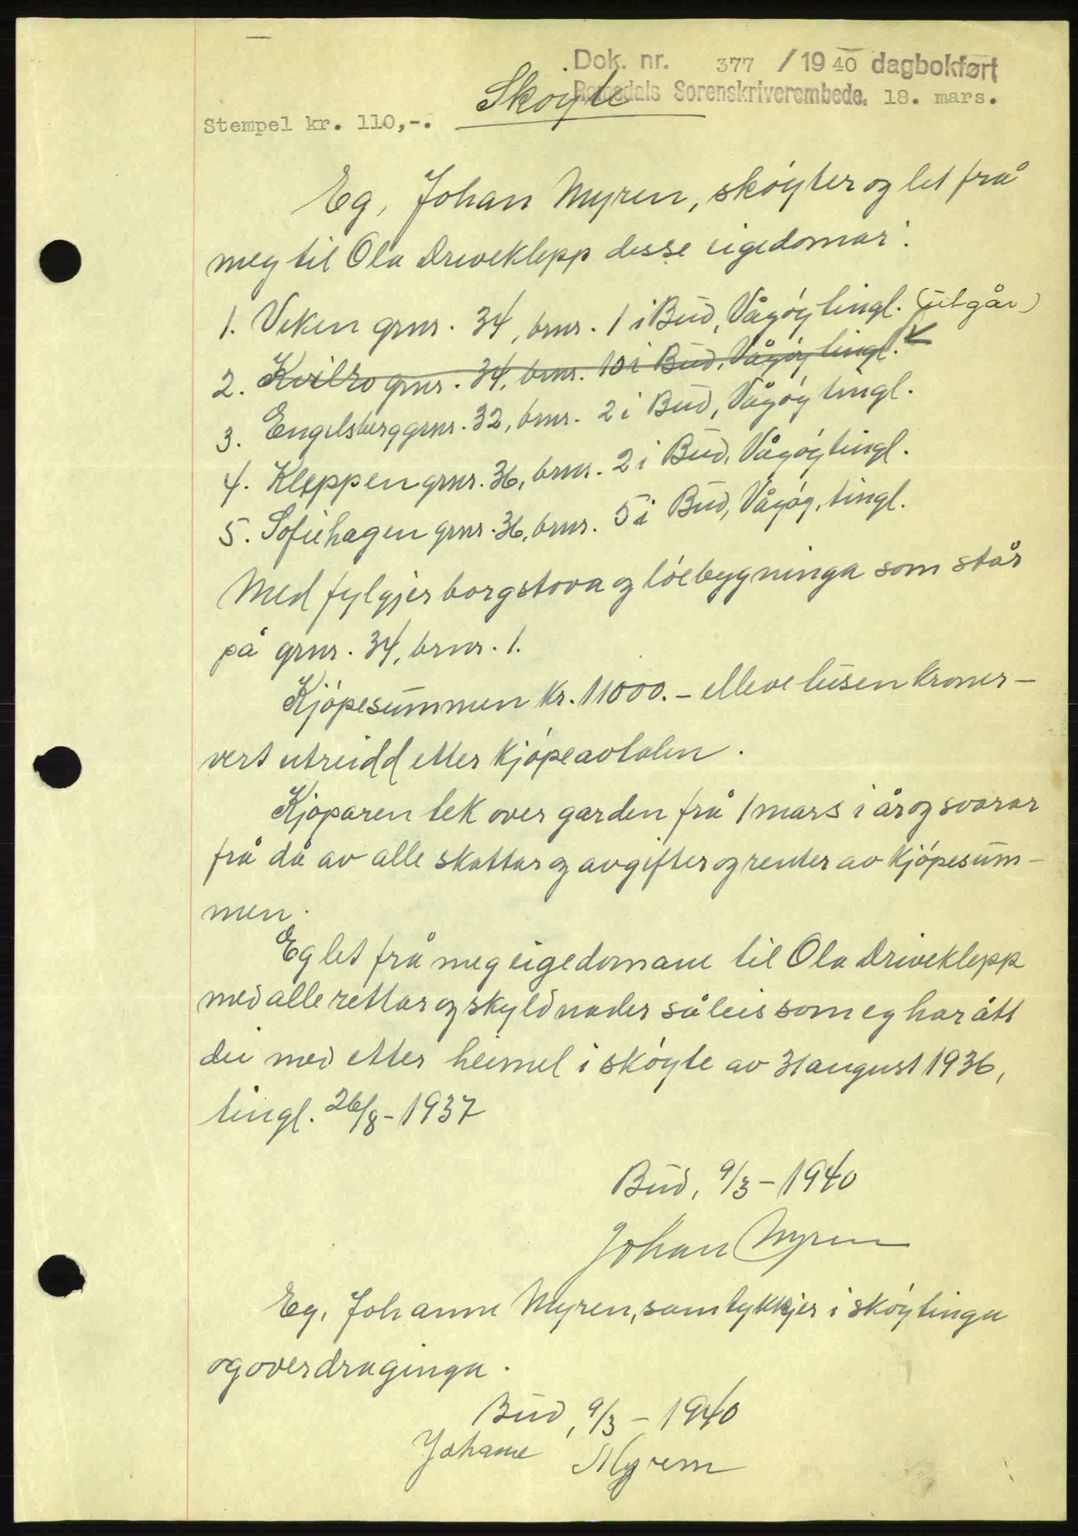 Dok. nr. 377 / 1940 dagbokført
Romsdals Sorenskriverembede. 18. mars.
Skøyte
Stempel kr. 110,-.
Eg, Johan Myren, skøyter og let frå
meg til Ola Driveklepp desse eigedomar:
1. Viken grnr. 34, brnr. 1 i Bud, Vågøy tingl. (utgår)
2. Kvilro grnr. 34, brnr. 10 i Bud, Vågøy tingl.
3. Engelsberg grnr. 32, brnr. 2 i Bud, Vågøy tingl.
4. Kleppen grnr. 36, brnr. 2 i Bud, Vågøy tingl.
5. Sofiehagen grnr. 36, brnr. 5 i Bud, Vågøy, tingl.
Med fylgjer borgstova og løebygninga som står
på grnr. 34, brnr. 1.
Kjøpesummen kr. 11000.- elleve tusen kroner -
vert utreidd etter kjøpeavtalen.
Kjøparen tek over garden frå 1 mars i år og svarar
frå då av alle skattar og avgifter og renter av kjøpesum-
men.
Eg let frå meg eigedomane til Ola Driveklepp
med alle rettar og skyldnader såleis som eg har ått
dei med etter heimel i skøyte av 31 august 1936,
tingl. 26/8 - 1937
Bud, 9/3 - 1940
Johan Myren
Eg, Johanne Myren, samtykkjer i skøytinga
og overdraginga.
Bud, 9/3 - 1940
Johanne Myren